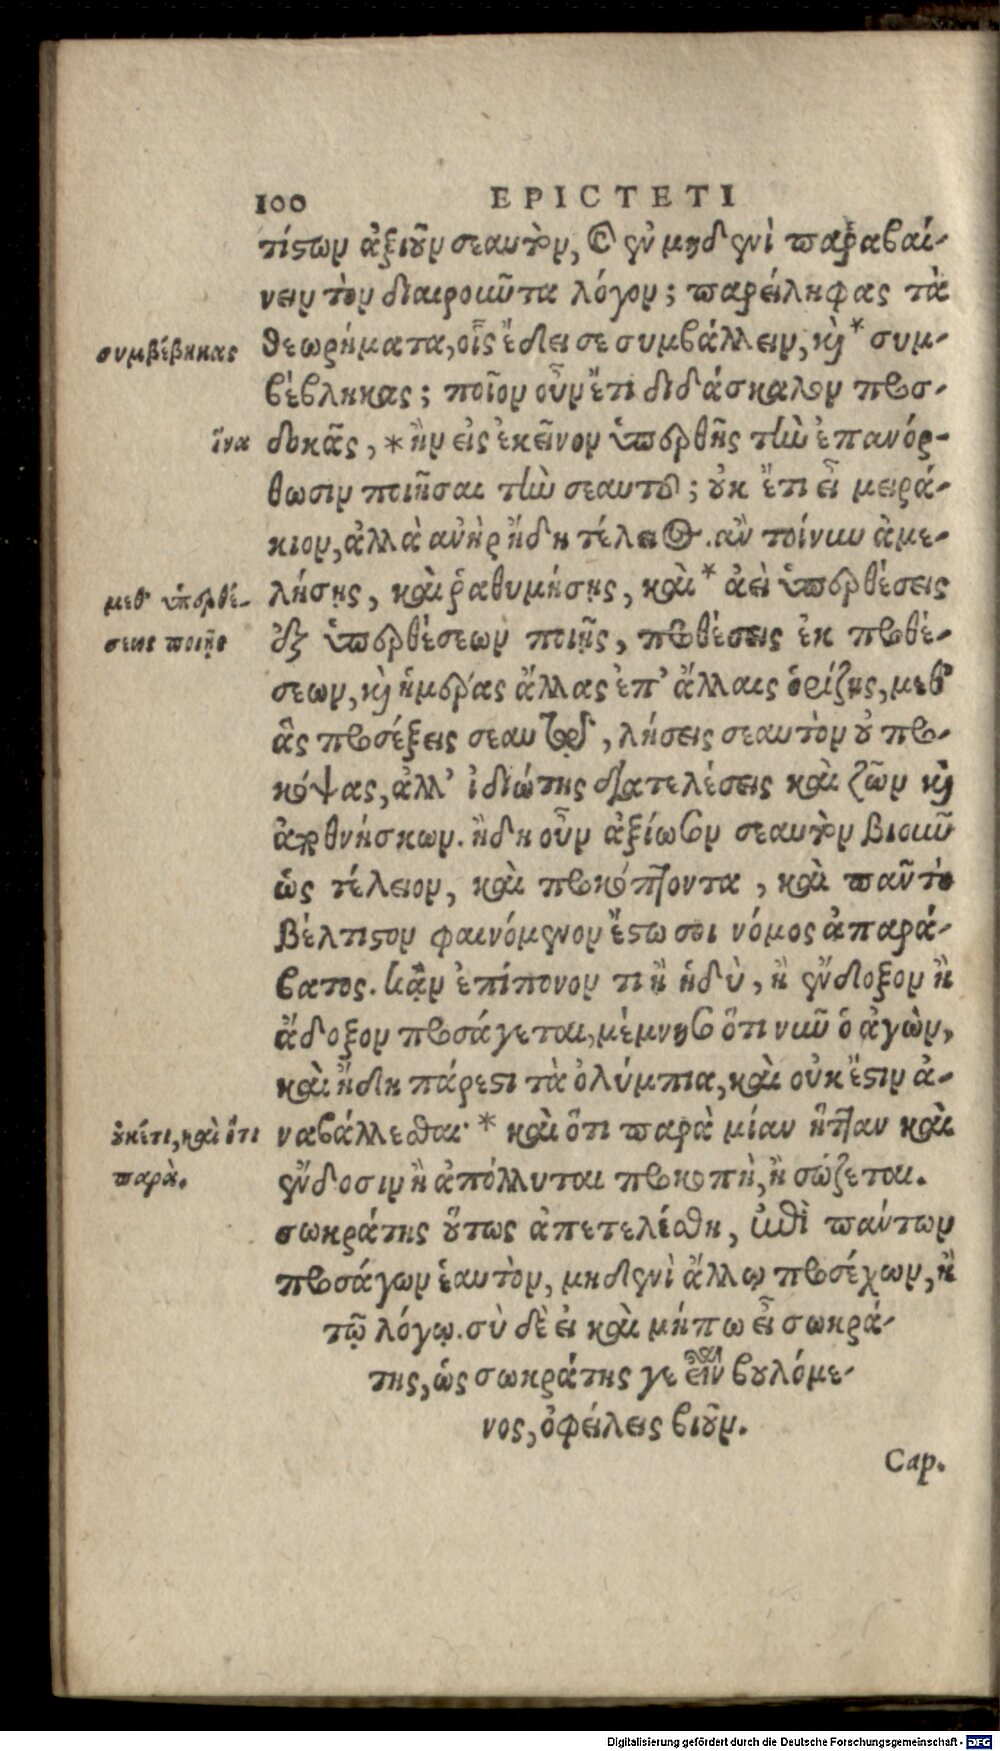 100 EPICTETI
τίστων ἀξιοῦν σεαυτὸν, καὶ ἐν μηδενὶ παραβαί-
νειν τὸν διαιροῦντα λόγον; παρείληφας τὰ
συμβέβηκας
θεωρήματα, οἷς ἔδει σε συμβάλλειν, καὶ * συμ-
βέβληκας; ποῖον οὖν ἔτι διδάσκαλον προσ-
ἵνα
δοκᾷς, * ἣν εἰς ἐκεῖνον ὑπερθῇς τὴν ἐπανόρ-
θωσιν ποιῆσαι τὴν σεαυτοῦ; οὐκ ἔτι εἶ μειρά-
κιον, ἀλλὰ ἀνὴρ ἤδη τέλειος. ἂν τοίνυν ἀμε-
μεθ' ὑπερθέ-
σεις ποιῇς
λήσῃς, καὶ ῥαθυμήσῃς, καὶ * ἀεὶ ὑπερθέσεις
ἐξ ὑπερθέσεων ποιῇς, προθέσεις ἐκ προθέ-
σεων, καὶ ἡμέρας ἄλλας ἐπ' ἄλλαις ὁρίζῃς, μεθ'
ἃς προσέξεις σεαυτῷ, λήσεις σεαυτὸν οὐ προ-
κόψας, ἀλλ' ἰδιώτης διατελέσεις καὶ ζῶν καὶ
ἀποθνήσκων. ἤδη οὖν ἀξίωσον σεαυτὸν βιοῦν
ὡς τέλειον, καὶ προκόπτοντα, καὶ πᾶν τὸ
βέλτιστον φαινόμενον ἔστω σοι νόμος ἀπαρά-
βατος. κἂν ἐπίπονόν τι ἢ ἡδὺ, ἢ ἔνδοξον ἢ
ἄδοξον προσάγεται, μέμνησο ὅτι νῦν ὁ ἀγὼν,
καὶ ἤδη πάρεστι τὰ ὀλύμπια, καὶ οὐκ ἔστιν ἀ-
οὐκέτι, καὶ ὅτι
παρὰ.
ναβάλλεσθαι· * καὶ ὅτι παρὰ μίαν ἧτταν καὶ
ἔνδοσιν ἢ ἀπόλλυται προκοπὴ, ἢ σώζεται.
σωκράτης οὕτως ἀπετελέσθη, ἐπὶ πάντων
προσάγων ἑαυτὸν, μηδενὶ ἄλλῳ προσέχων, ἢ
τῷ λόγῳ. σὺ δὲ εἰ καὶ μήπω εἶ σωκρά-
της, ὡς σωκράτης γε εἶναι βουλόμε-
νος, ὀφείλεις βιοῦν.
Cap.
Digitalisierung gefördert durch die Deutsche Forschungsgemeinschaft - DFG